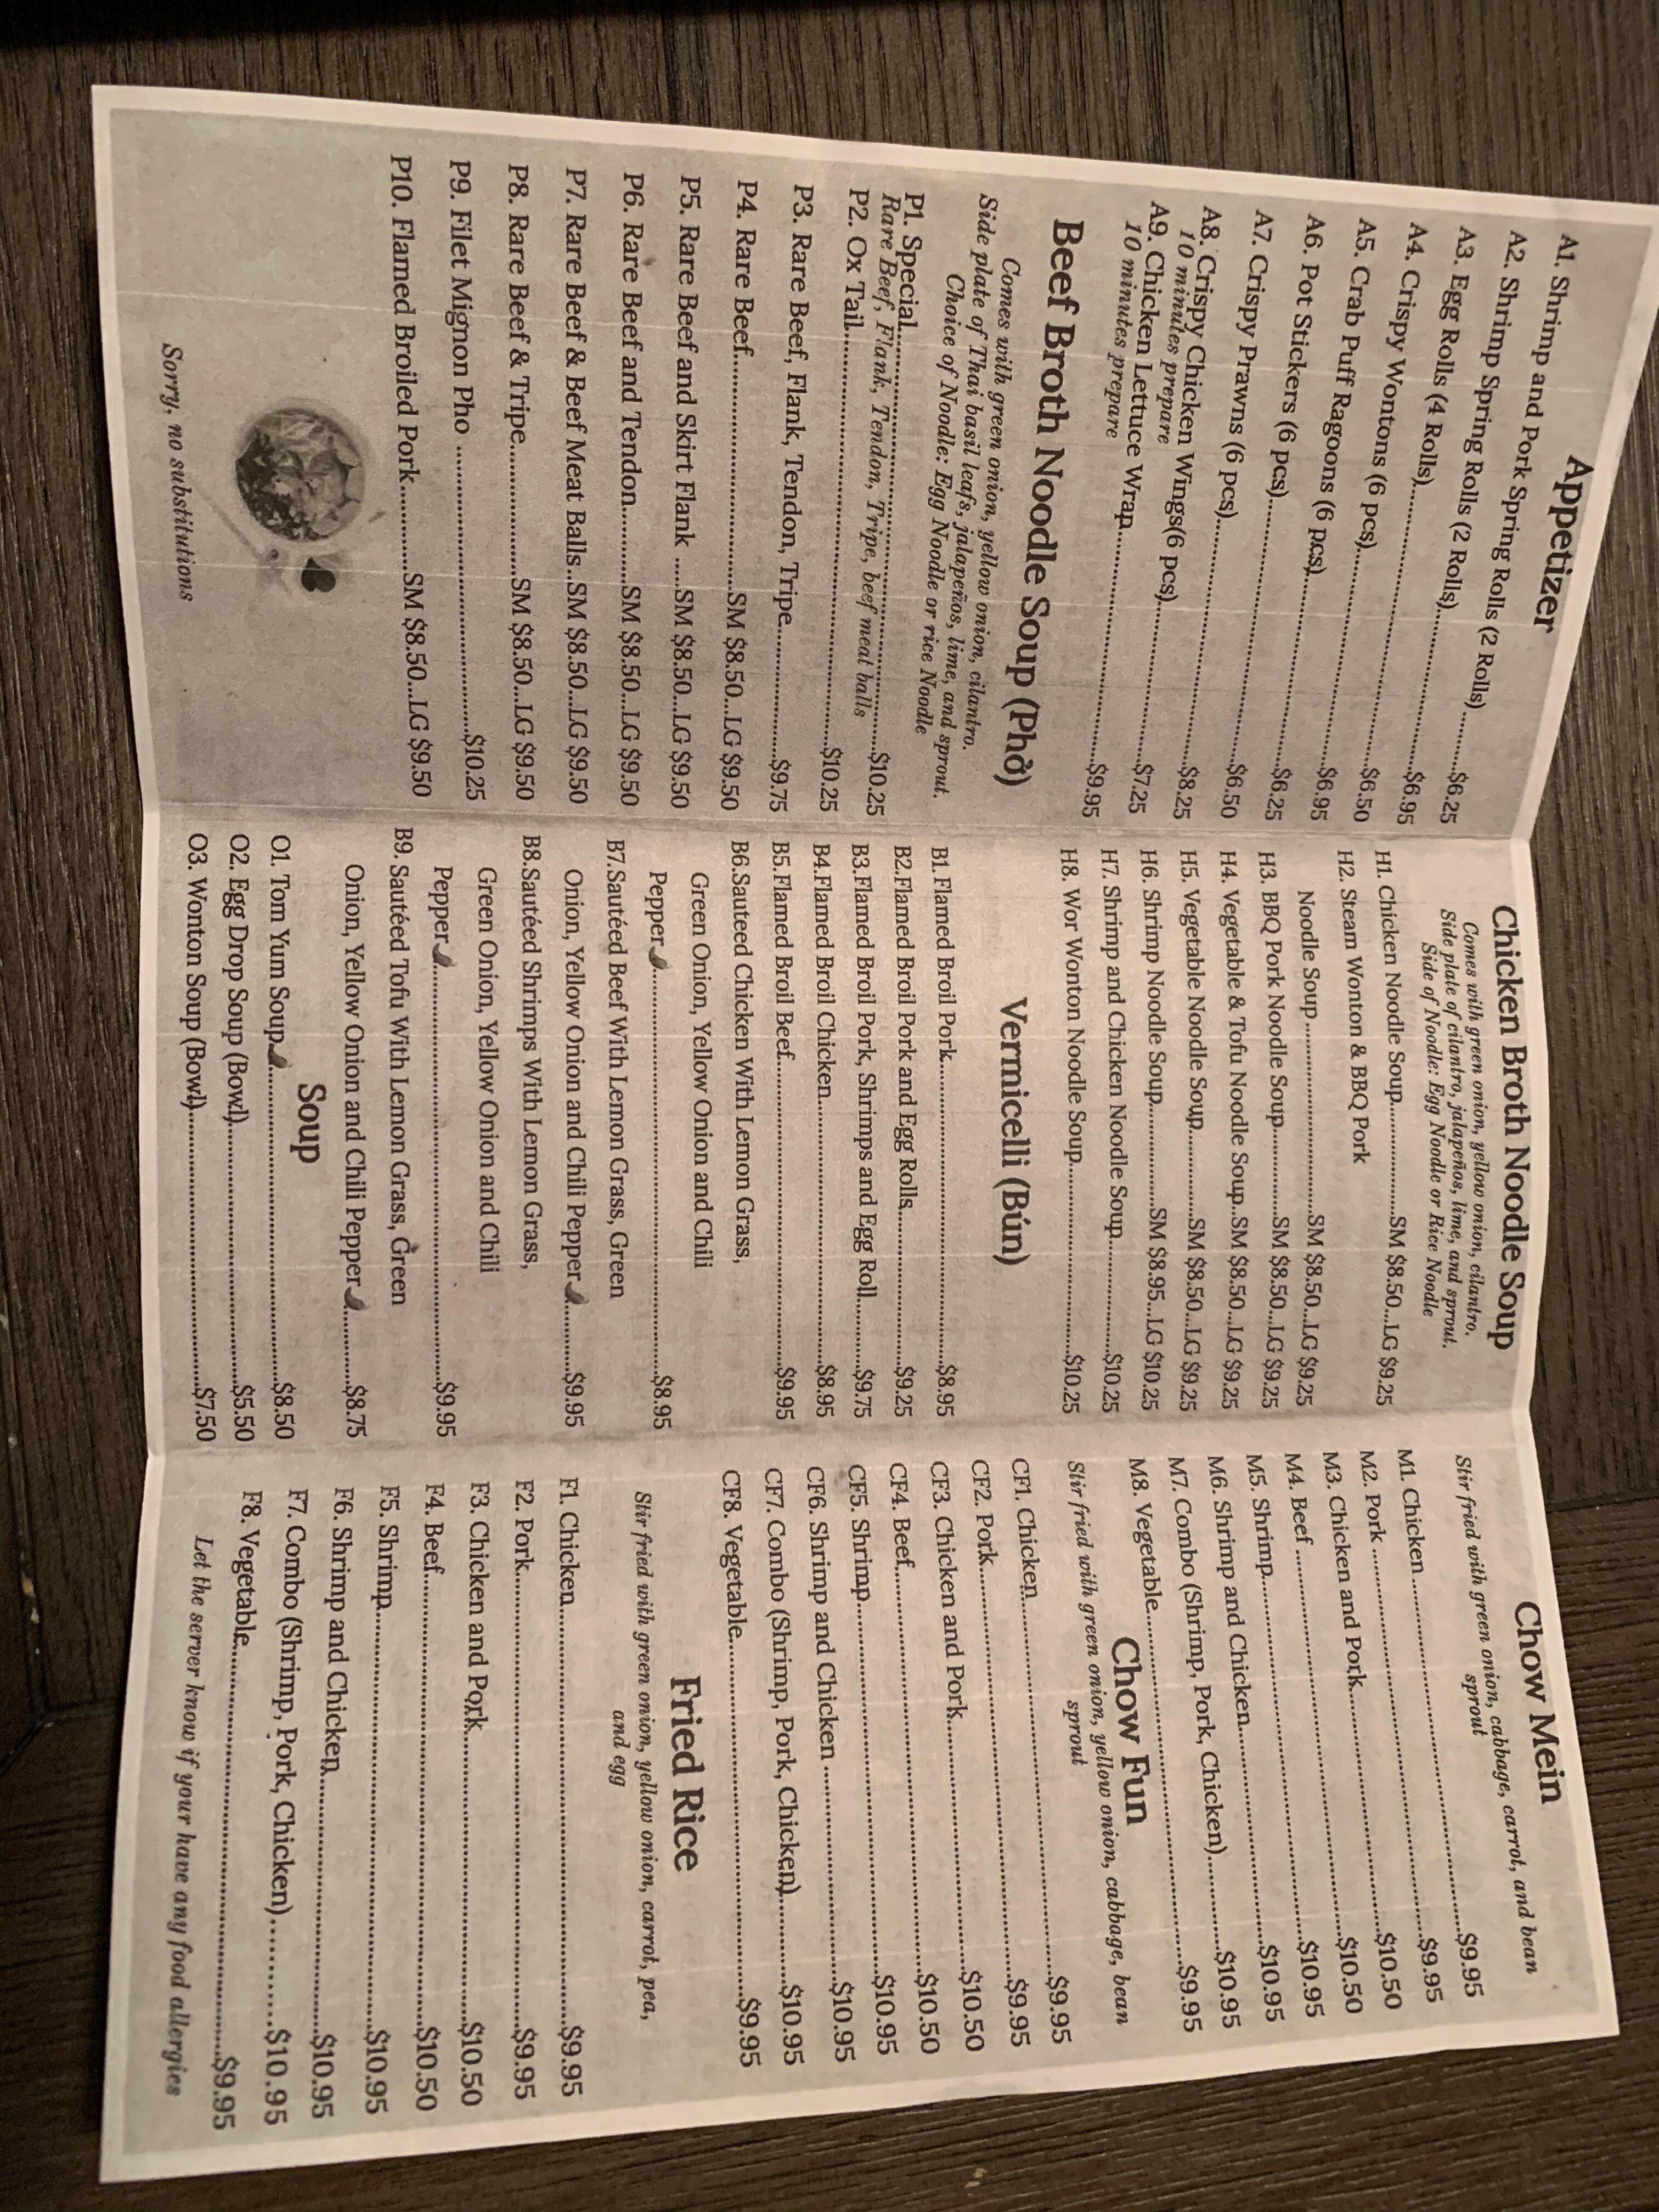 Appetizer
A1. Shrimp and Pork Spring Rolls (2 Rolls) ........$6.25
A2. Shrimp Spring Rolls (2 Rolls)......................$6.95
A3. Egg Rolls (4 Rolls)......................................$6.50
A4. Crispy Wontons (6 pcs)..............................$6.95
A5. Crab Puff Ragoons (6 pcs)..........................$6.25
A6. Pot Stickers (6 pcs).....................................$6.50
A7. Crispy Prawns (6 pcs).................................$8.25
A8. Crispy Chicken Wings(6 pcs)......................$7.25
10 minutes prepare
A9. Chicken Lettuce Wrap................................$9.95
10 minutes prepare
Beef Broth Noodle Soup (Phở)
Comes with green onion, yellow onion, cilantro.
Side plate of Thai basil leafs, jalapeños, lime, and sprout.
Choice of Noodle: Egg Noodle or rice Noodle
P1. Special.......................................................$10.25
Rare Beef, Flank, Tendon, Tripe, beef meat balls
P2. Ox Tail.......................................................$10.25
P3. Rare Beef, Flank, Tendon, Tripe..................$9.75
P4. Rare Beef..............................SM $8.50...LG $9.50
P5. Rare Beef and Skirt Flank .....SM $8.50...LG $9.50
P6. Rare Beef and Tendon..........SM $8.50...LG $9.50
P7. Rare Beef & Beef Meat Balls..SM $8.50...LG $9.50
P8. Rare Beef & Tripe.................SM $8.50...LG $9.50
P9. Filet Mignon Pho .......................................$10.25
P10. Flamed Broiled Pork...........SM $8.50...LG $9.50
Sorry, no substitutions
Chicken Broth Noodle Soup
Comes with green onion, yellow onion, cilantro.
Side plate of cilantro, jalapeños, lime, and sprout.
Side of Noodle: Egg Noodle or Rice Noodle
H1. Chicken Noodle Soup...............SM $8.50...LG $9.25
H2. Steam Wonton & BBQ Pork
Noodle Soup ..........................SM $8.50...LG $9.25
H3. BBQ Pork Noodle Soup............SM $8.50...LG $9.25
H4. Vegetable & Tofu Noodle Soup..SM $8.50...LG $9.25
H5. Vegetable Noodle Soup............SM $8.50...LG $9.25
H6. Shrimp Noodle Soup..............SM $8.95...LG $10.25
H7. Shrimp and Chicken Noodle Soup................$10.25
H8. Wor Wonton Noodle Soup...........................$10.25
Vermicelli (Bún)
B1. Flamed Broil Pork.........................................$8.95
B2.Flamed Broil Pork and Egg Rolls.....................$9.25
B3.Flamed Broil Pork, Shrimps and Egg Roll..........$9.75
B4.Flamed Broil Chicken.....................................$8.95
B5.Flamed Broil Beef..........................................$9.95
B6.Sauteed Chicken With Lemon Grass,
Green Onion, Yellow Onion and Chili
Pepper.........................................................$8.95
B7.Sautéed Beef With Lemon Grass, Green
Onion, Yellow Onion and Chili Pepper...........$9.95
B8.Sautéed Shrimps With Lemon Grass,
Green Onion, Yellow Onion and Chili
Pepper.........................................................$9.95
B9. Sautéed Tofu With Lemon Grass, Green
Onion, Yellow Onion and Chili Pepper..........$8.75
Soup
O1. Tom Yum Soup...........................................$8.50
O2. Egg Drop Soup (Bowl).................................$5.50
O3. Wonton Soup (Bowl)...................................$7.50
Chow Mein
Stir fried with green onion, cabbage, carrot, and bean
sprout
M1. Chicken ..................................................$9.95
M2. Pork .......................................................$9.95
M3. Chicken and Pork....................................$10.50
M4. Beef .......................................................$10.50
M5. Shrimp....................................................$10.95
M6. Shrimp and Chicken................................$10.95
M7. Combo (Shrimp, Pork, Chicken)...............$10.95
M8. Vegetable................................................$9.95
Chow Fun
Stir fried with green onion, yellow onion, cabbage, bean
sprout
CF1. Chicken..................................................$9.95
CF2. Pork.......................................................$9.95
CF3. Chicken and Pork...................................$10.50
CF4. Beef.......................................................$10.50
CF5. Shrimp...................................................$10.95
CF6. Shrimp and Chicken ..............................$10.95
CF7. Combo (Shrimp, Pork, Chicken)..............$10.95
CF8. Vegetable...............................................$9.95
Fried Rice
Stir fried with green onion, yellow onion, carrot, pea,
and egg
F1. Chicken....................................................$9.95
F2. Pork.........................................................$9.95
F3. Chicken and Pork.....................................$10.50
F4. Beef.........................................................$10.50
F5. Shrimp.....................................................$10.95
F6. Shrimp and Chicken.................................$10.95
F7. Combo (Shrimp, Pork, Chicken)..........$10.95
F8. Vegetable.................................................$9.95
Let the server know if your have any food allergies